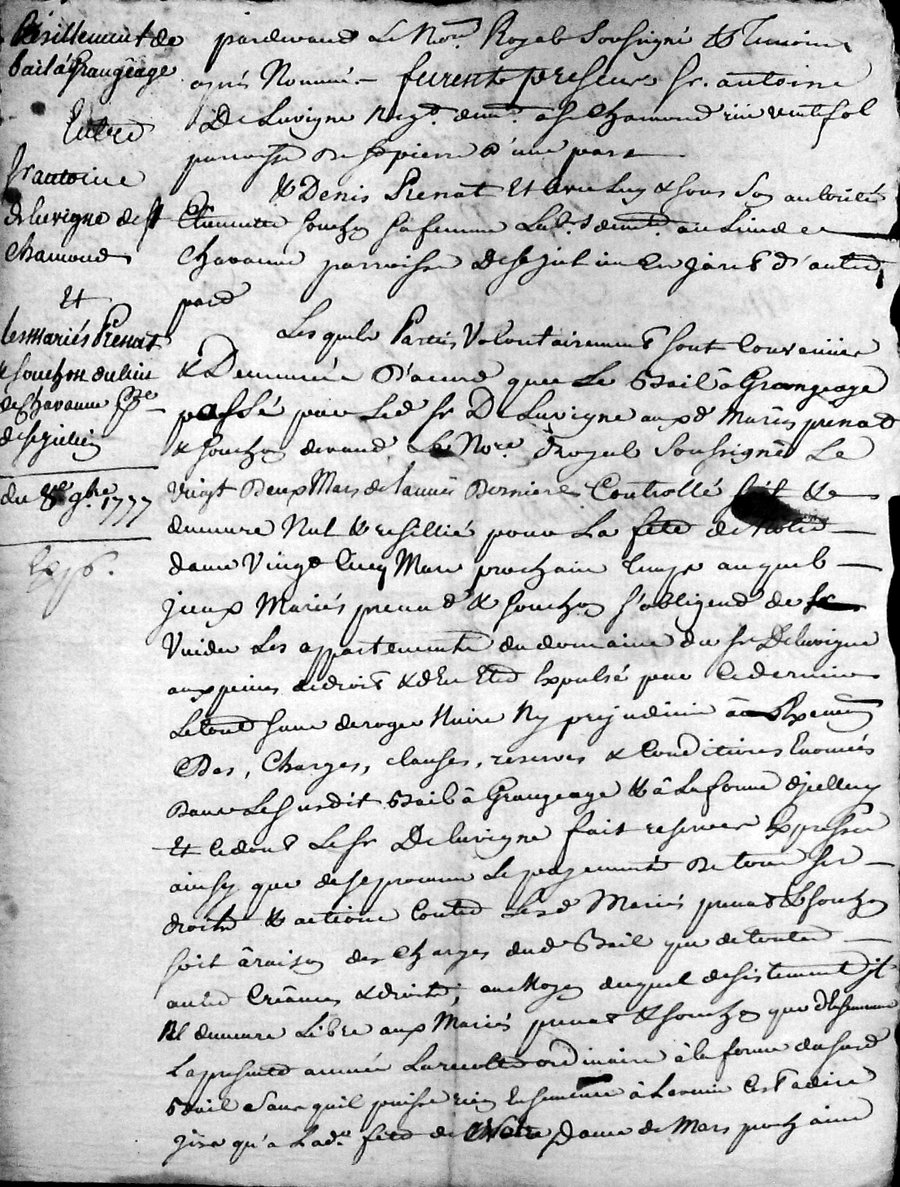 Résillement de
bail à Grangeage
Entre
Sr antoine
deluvigne de St
chamond
Et
les mariés Prenat
& Souchon du lieu
de Chavanne
de St julien
du 8e 9bre 1777
pardevant Le Nore Royal Soussigné & Temoins
après Nommés furent presens Sr. antoine
DeLuvigne Negt. demt. à St Chamond
parroisse De St pierre d'une part
& Denis Prenat Et de lui & sous Son autorité
Souchon sa femme Labrs demt. au Lieu de
Chavanne parroisse De St julien En jarest d'autre
part
Lesquels Parties Volontairement sont Convenues
& Demeurées D'acord que Le Bail à Grangeage
passé par Led Sr DeLuvigne auxd Mariés prenat
& Souchon devant Le Nore Royal Soussigné Le
Vingt Deux Mars de l'année Derniere Controllé soit &
demeure Nul & resillié pour La fete de Notre
dame Vingt Cinq Mars prochain temps auquel
iceux Mariés prenat & Souchon s'obligent de
Vuider Les appartements du domaine du Sr Deluvigne
aux peines de droit & d'En Etre Expulsé par Ce dernier
Le tout sans deroger Nuire Ny prejudicier à
Des, Charges, clauses, reserves & Conditions Enoncées
Dans Le Susdit Bail à Grangeage & à La forme d'jcelluy
Et ce dont Le Sr DeLuvigne fait reserve Expresse
ainsy que de se procurer Le payement De tous Ses
droits & actions Contre Lesd Mariés prenat & Souchon
soit à raison des Charges dud Bail que de toutes
autres Créances & droits, au Moyen duquel desistement jl
demeure Libre aux Mariés prenat & Souchon que
La presente année La recolte ordinaire à la forme dususd
Bail Sans quil puisse rien Ensemencer à L'avenir C'est à dire
jusqu'à Lade. fete de Notre Dame de Mars prochaine